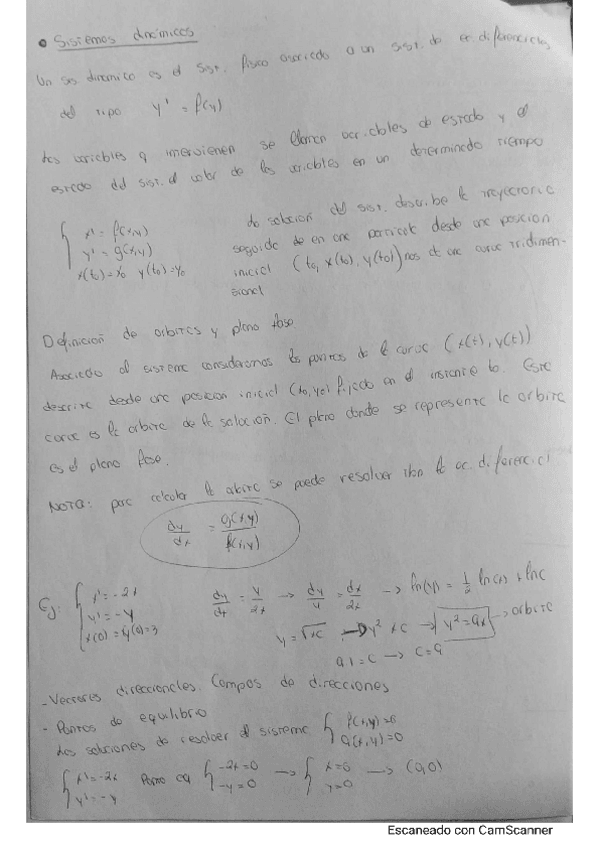 • Sistemas dinámicos
Un sis dinamico es el sist. fisico asociado a un sist. de ec. diferenciales
del tipo y' = f(y)
Las variables q intervienen se llaman variables de estado y el
estado del sist. el valor de las variables en un determinado tiempo
{ x' = f(x,y)
y' = g(x,y)
x(t0)=x0 y(t0)=y0
La solución del sist. describe la trayectoria
seguida de en una particula desde una posicion
inicial (t0, x(t0), y(t0)) nos da una curva tridimen-
sional
Definición de orbitas y plano fase
Asociado al sistema consideramos los puntos de la curva (x(t), y(t))
descrita desde una posicion inicial (t0, y0) fijado en el instante t0. Esta
curva es la orbita de la solución. El plano donde se representa la orbita
es el plano fase.
NOTA: para calcular la orbita se puede resolver la ec. diferencial
dy/dx = g(x,y)/f(x,y)
Ej: { x' = -2x
y' = -y
x(0)=1 y(0)=3
dy/dx = y/2x → dy/y = dx/2x → ln(y) = 1/2 ln(x) + lnC
y = √xC → y² = xC → y² = 9x → orbita
9 1 = C → C = 9
- Vectores direccionales. Campos de direcciones
- Puntos de equilibrio
Las soluciones de resolver el sistema { f(x,y)=0
g(x,y)=0
{ x' = -2x
y' = -y
Punto eq { -2x=0
-y=0
→ { x=0
y=0
→ (0,0)
Escaneado con CamScanner